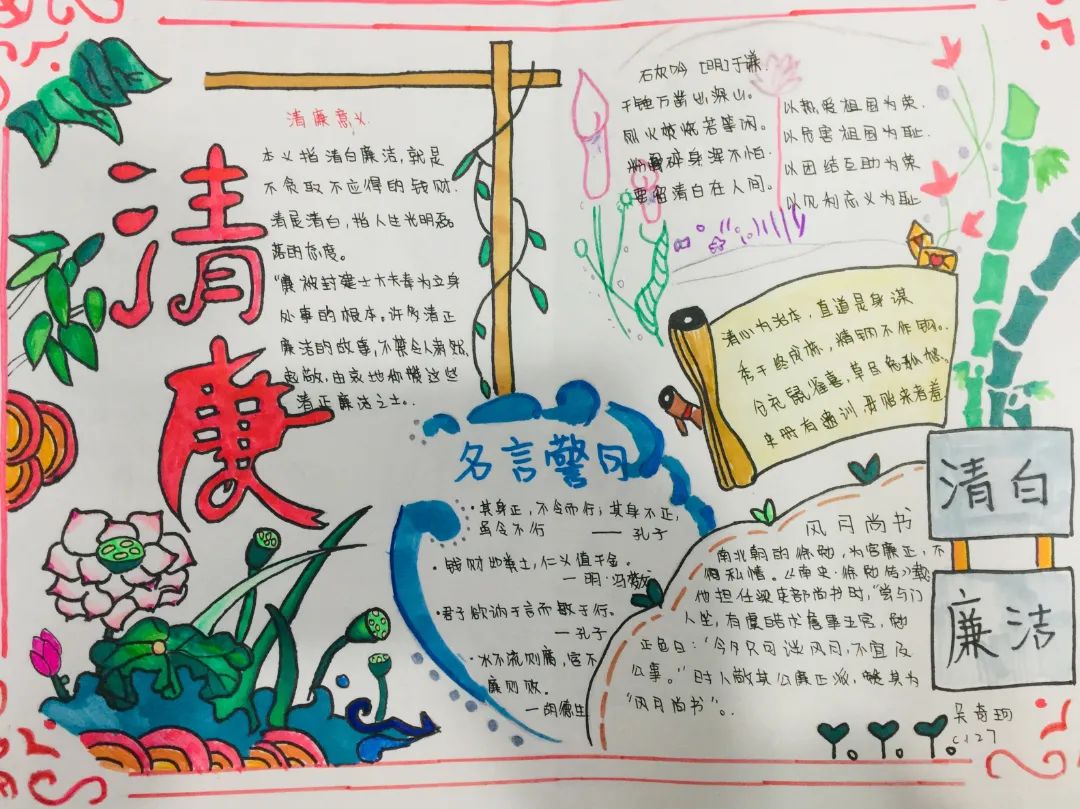 清廉
清廉意义
本义指清白廉洁,就是
不贪取不应得的钱财.
清是清白,指人生光明磊
落的态度。
"廉被封建士大夫奉为立身
处事的根本。许多清正
廉洁的故事,不禁令人肃然
起敬,由衷地仰慕这些
清正廉洁之士。
石灰吟 [明]于谦.
千锤万凿出深山。
烈火焚烧若等闲。
粉骨碎身浑不怕.
要留清白在人间。
以热爱祖国为荣.
以危害祖国为耻.
以团结互助为荣
以见利忘义为耻
清心为治本,直道是身谋
秀干终成栋,精钢不作钩。
仓充鼠雀喜,草尽兔狐愁。
史册有遗训,毋贻来者羞
名言警句
·其身正,不令而行;其身不正,
虽令不行
——孔子
·钱财如粪土,仁义值千金.
—明·冯
·君子欲讷于言而敏于行。
—孔子
·水不流则腐,官不
廉则败。
—胡德生
风月尚书
南北朝的徐勉,为官廉正,不
徇私情。《南史·徐勉传》载
他担任梁吏部尚书时,"常与门
人坐,有虞暠求詹事五官,勉
正色曰:'今夕只可谈风月,不宜及
公事。"时人敬其公廉正派,
"风月尚书"。
清白
廉洁
吴奇珂
C127